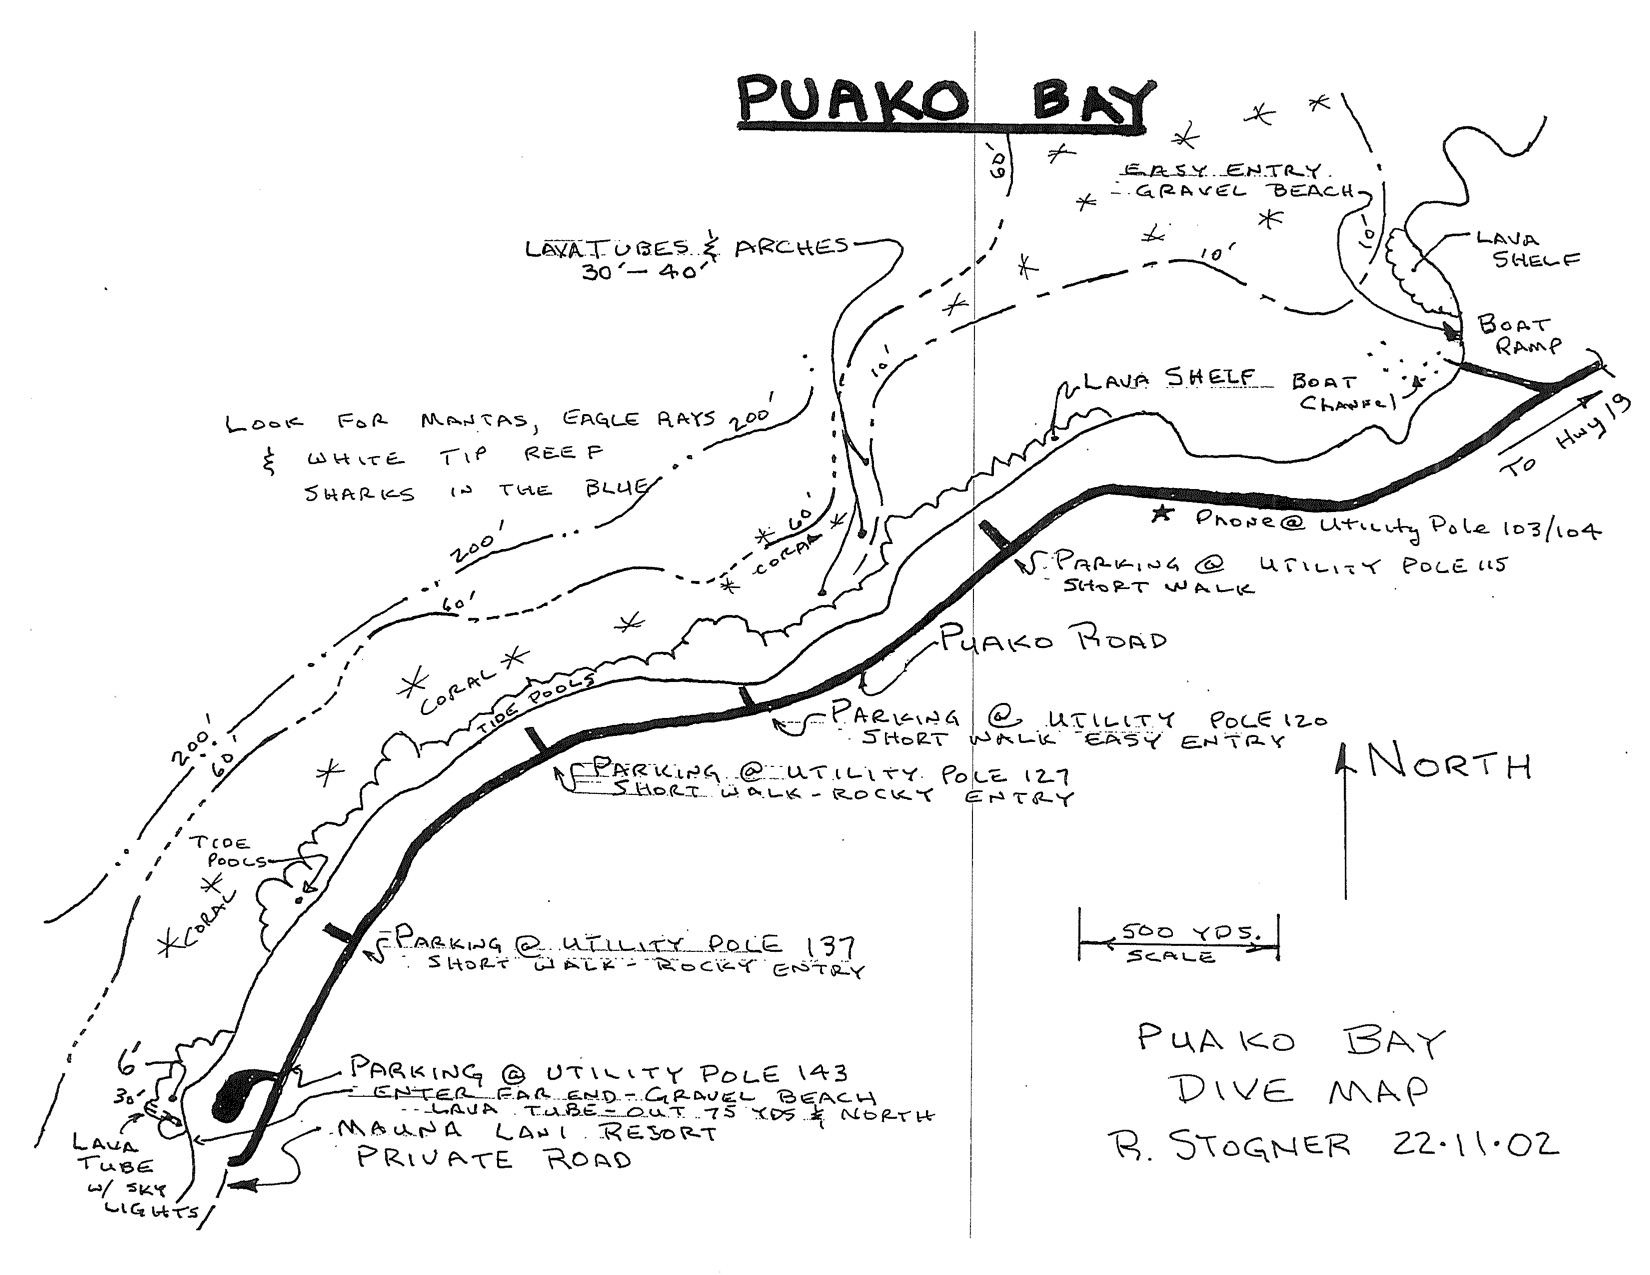 PUAKO BAY
60'
EASY ENTRY
GRAVEL BEACH
10'
LAVA
SHELF
LAVA TUBES & ARCHES
30'-40'
10'
BOAT
RAMP
10'
LAVA SHELF
BOAT
CHANNEL
TO HWY 19
LOOK FOR MANTAS, EAGLE RAYS
& WHITE TIP REEF
SHARKS IN THE BLUE
200'
60'
CORAL
200'
60'
PHONE @ UTILITY POLE 103/104
PARKING @ UTILITY POLE 115
SHORT WALK
PUAKO ROAD
CORAL
TIDE POOLS
PARKING @ UTILITY POLE 120
SHORT WALK EASY ENTRY
200'
60'
PARKING @ UTILITY POLE 127
SHORT WALK - ROCKY ENTRY
NORTH
TIDE
POOLS
CORAL
PARKING @ UTILITY POLE 137
SHORT WALK - ROCKY ENTRY
500 YDS.
SCALE
6'
30'
LAVA
TUBE
W/ SKY
LIGHTS
PARKING @ UTILITY POLE 143
ENTER FAR END - GRAVEL BEACH
LAVA TUBE - OUT 75 YDS & NORTH
MAUNA LANI RESORT
PRIVATE ROAD
PUAKO BAY
DIVE MAP
R. STOGNER 22·11·02